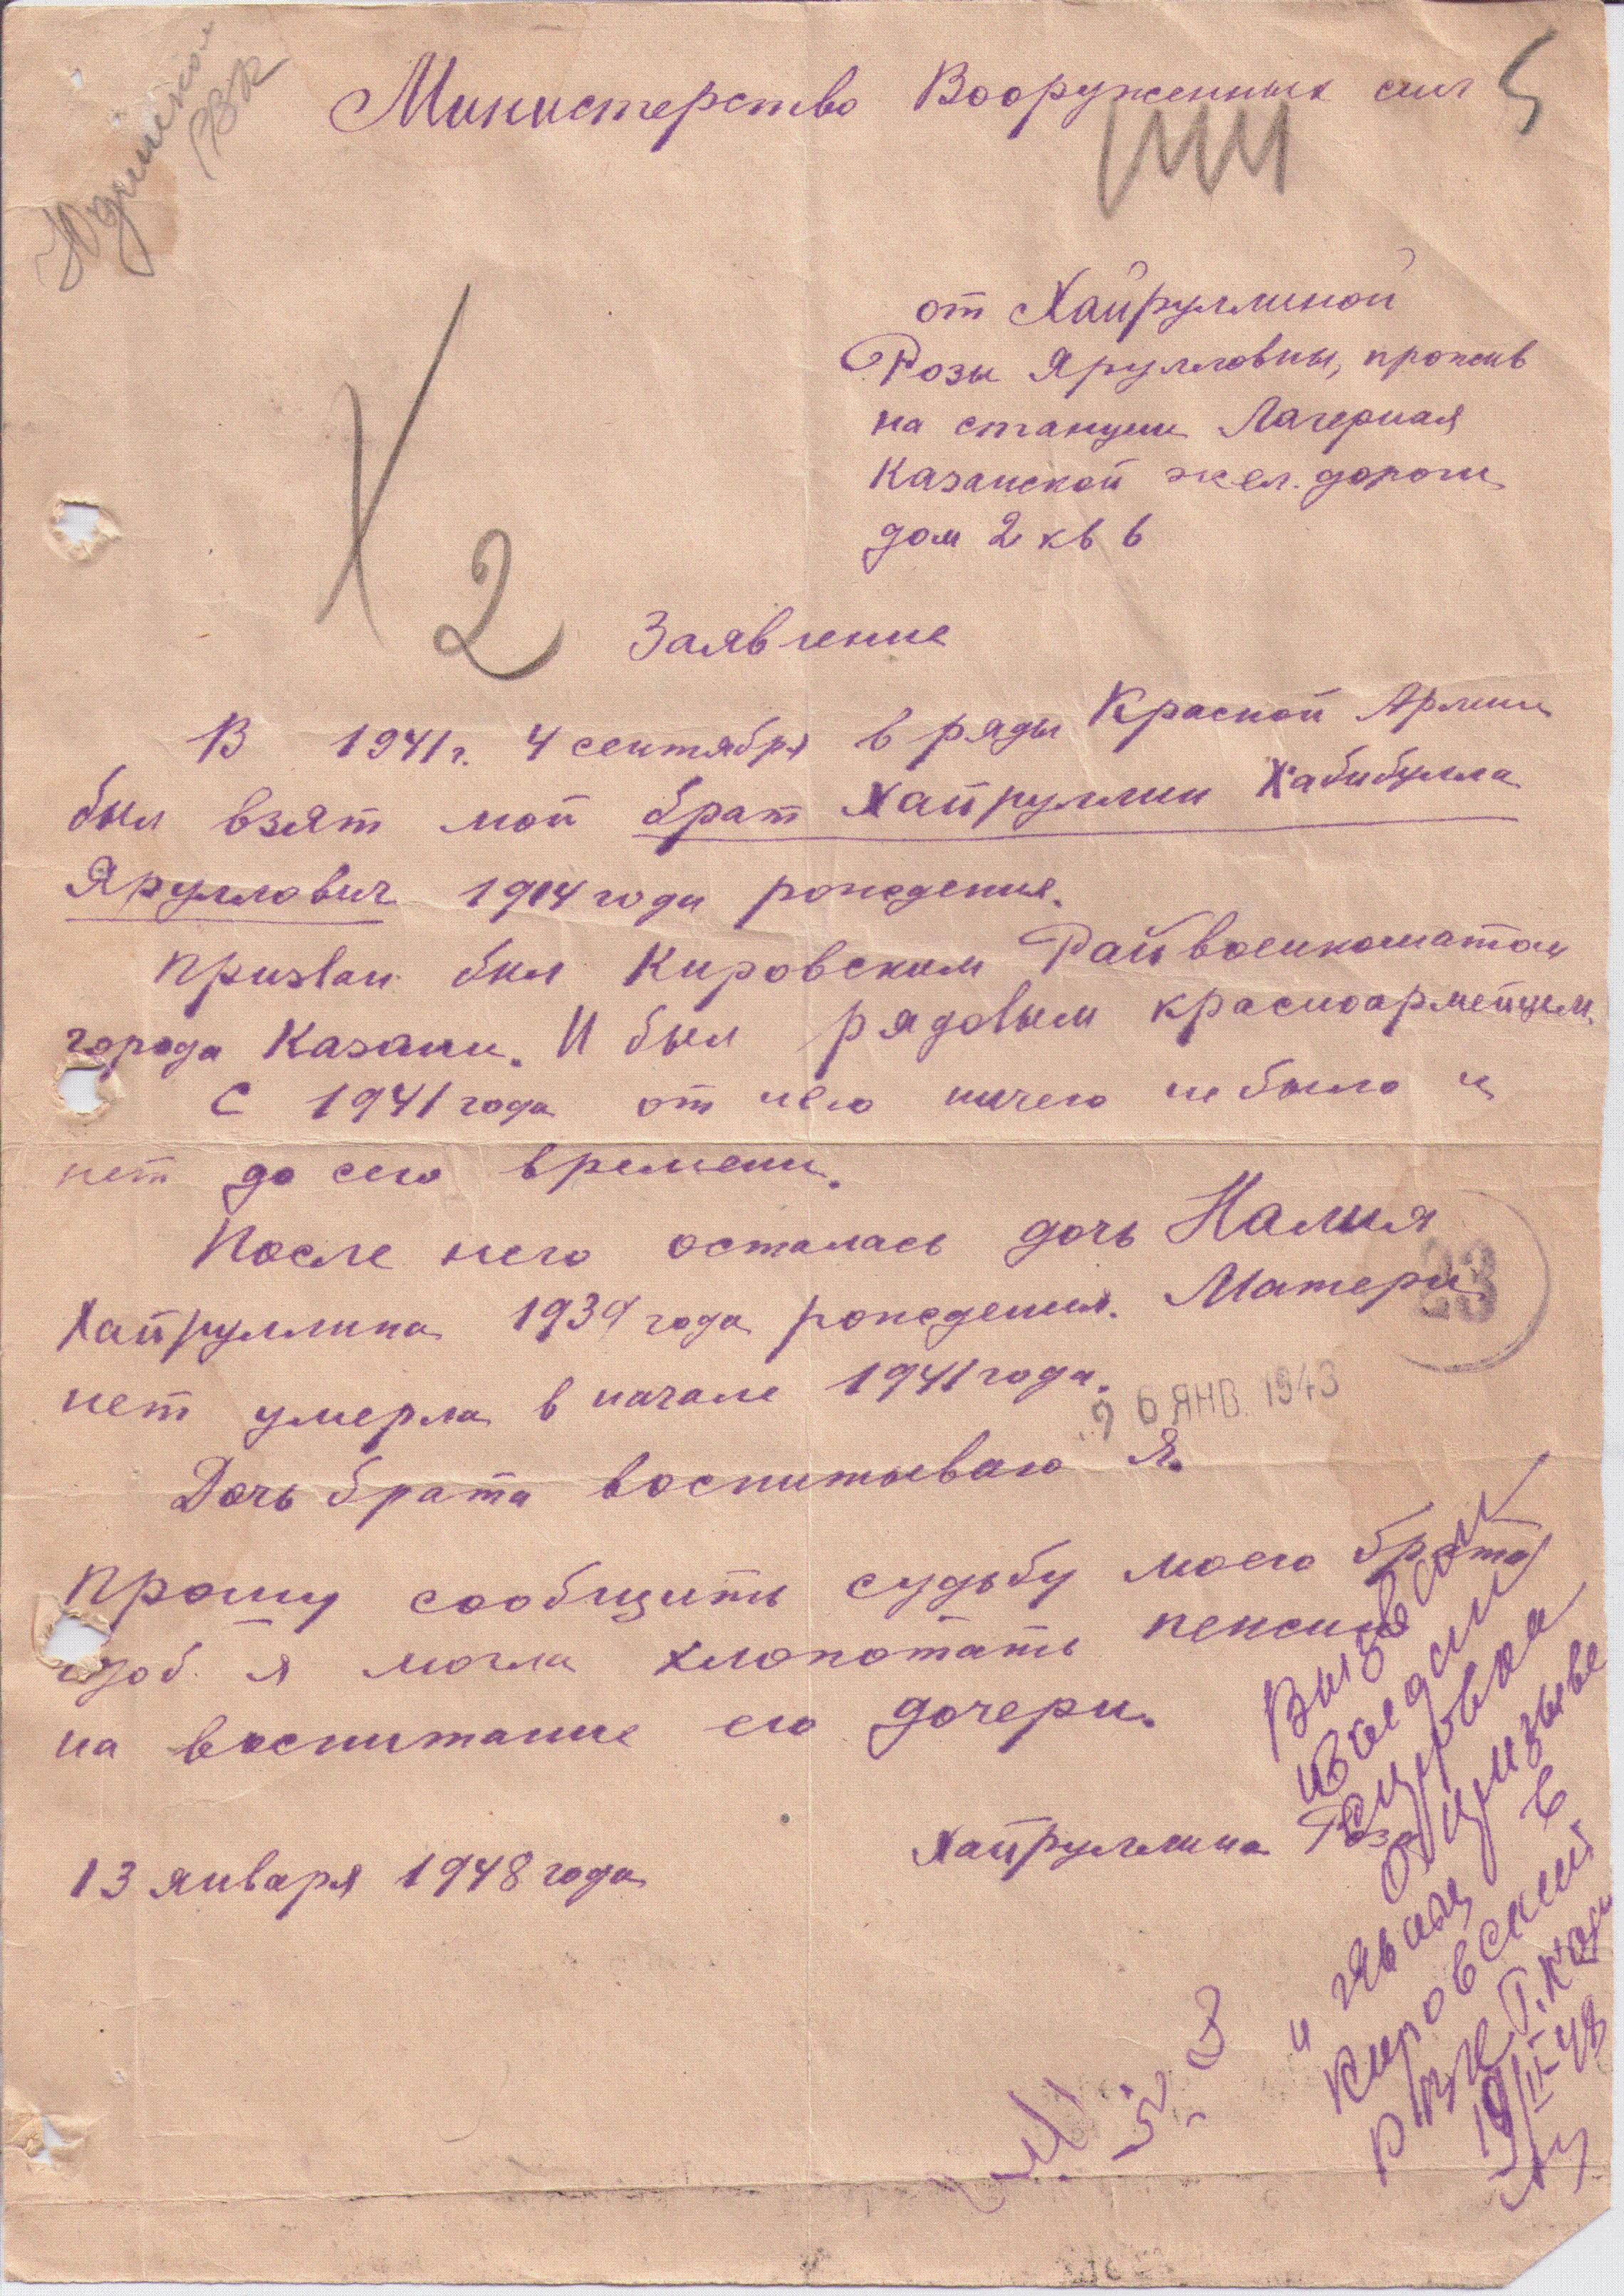 Юдинское
РВК
Министерство Вооруженных сил
5
от Хайруллиной
Розы Яруллoвны, прожив
на станции Лагерная
Казанской жел. дороги
дом 2 кв 6
2
Заявление
В 1941 г. 4 сентября в ряды Красной Армии
был взят мой брат Хайруллин Хабибулла
Яруллович 1914 года рождения.
призван был Кировским Райвоенкоматом
города Казани. И был рядовым красноармейцем.
С 1941 года от него ничего не было и
нет до сего времени.
После него осталась дочь Налия
Хайруллина 1939 года рождения. Матери
нет умерла в начале 1941 года.
23
26 ЯНВ. 1943
Дочь брата воспитываю Я.
Прошу сообщить судьбу моего брата
чтоб. я могла хлопотать пенсию
на воспитание его дочери.
Хайруллина Роза
13 января 1948 года
о призыве
в
Кировский
РВК г. Каз
19/II-48